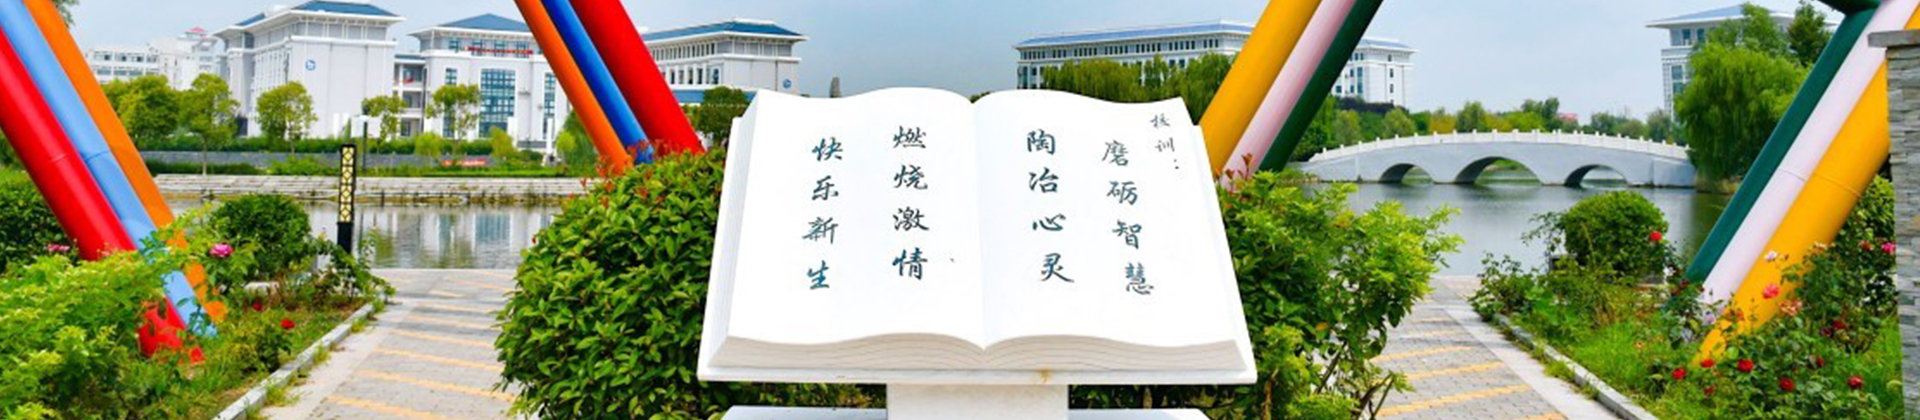 校训：
磨砺智慧
陶冶心灵
燃烧激情
快乐新生